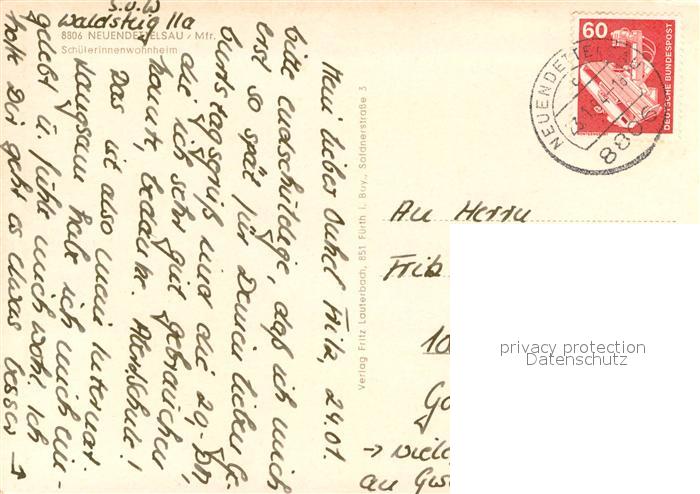 s.u.W
Waldsteig 11a
8806 NEUENDETTELSAU / Mfr.
Schülerinnenwohnheim
Mein lieber Onkel Fritz, 24.01.
bitte endschuldige, daß ich mich
erst so spät für Deinen lieben Ge-
burtstagsgruß und die 20,- DM,
die ich sehr gut gebrauchen
konnte, bedanke. Abendschule!
Das ist also mein Internat.
Langsam habe ich mich ein-
gelebt u. fühle mich wohl. Ich
hoffe Dir geht es etwas besser →
Verlag Fritz Lauterbach, 851 Fürth i. Bay., Soldnerstraße 3
60
DEUTSCHE BUNDESPOST
NEUENDETTELSAU
8806
An Herrn
Fritz
10
→ viele
an
privacy protection
Datenschutz